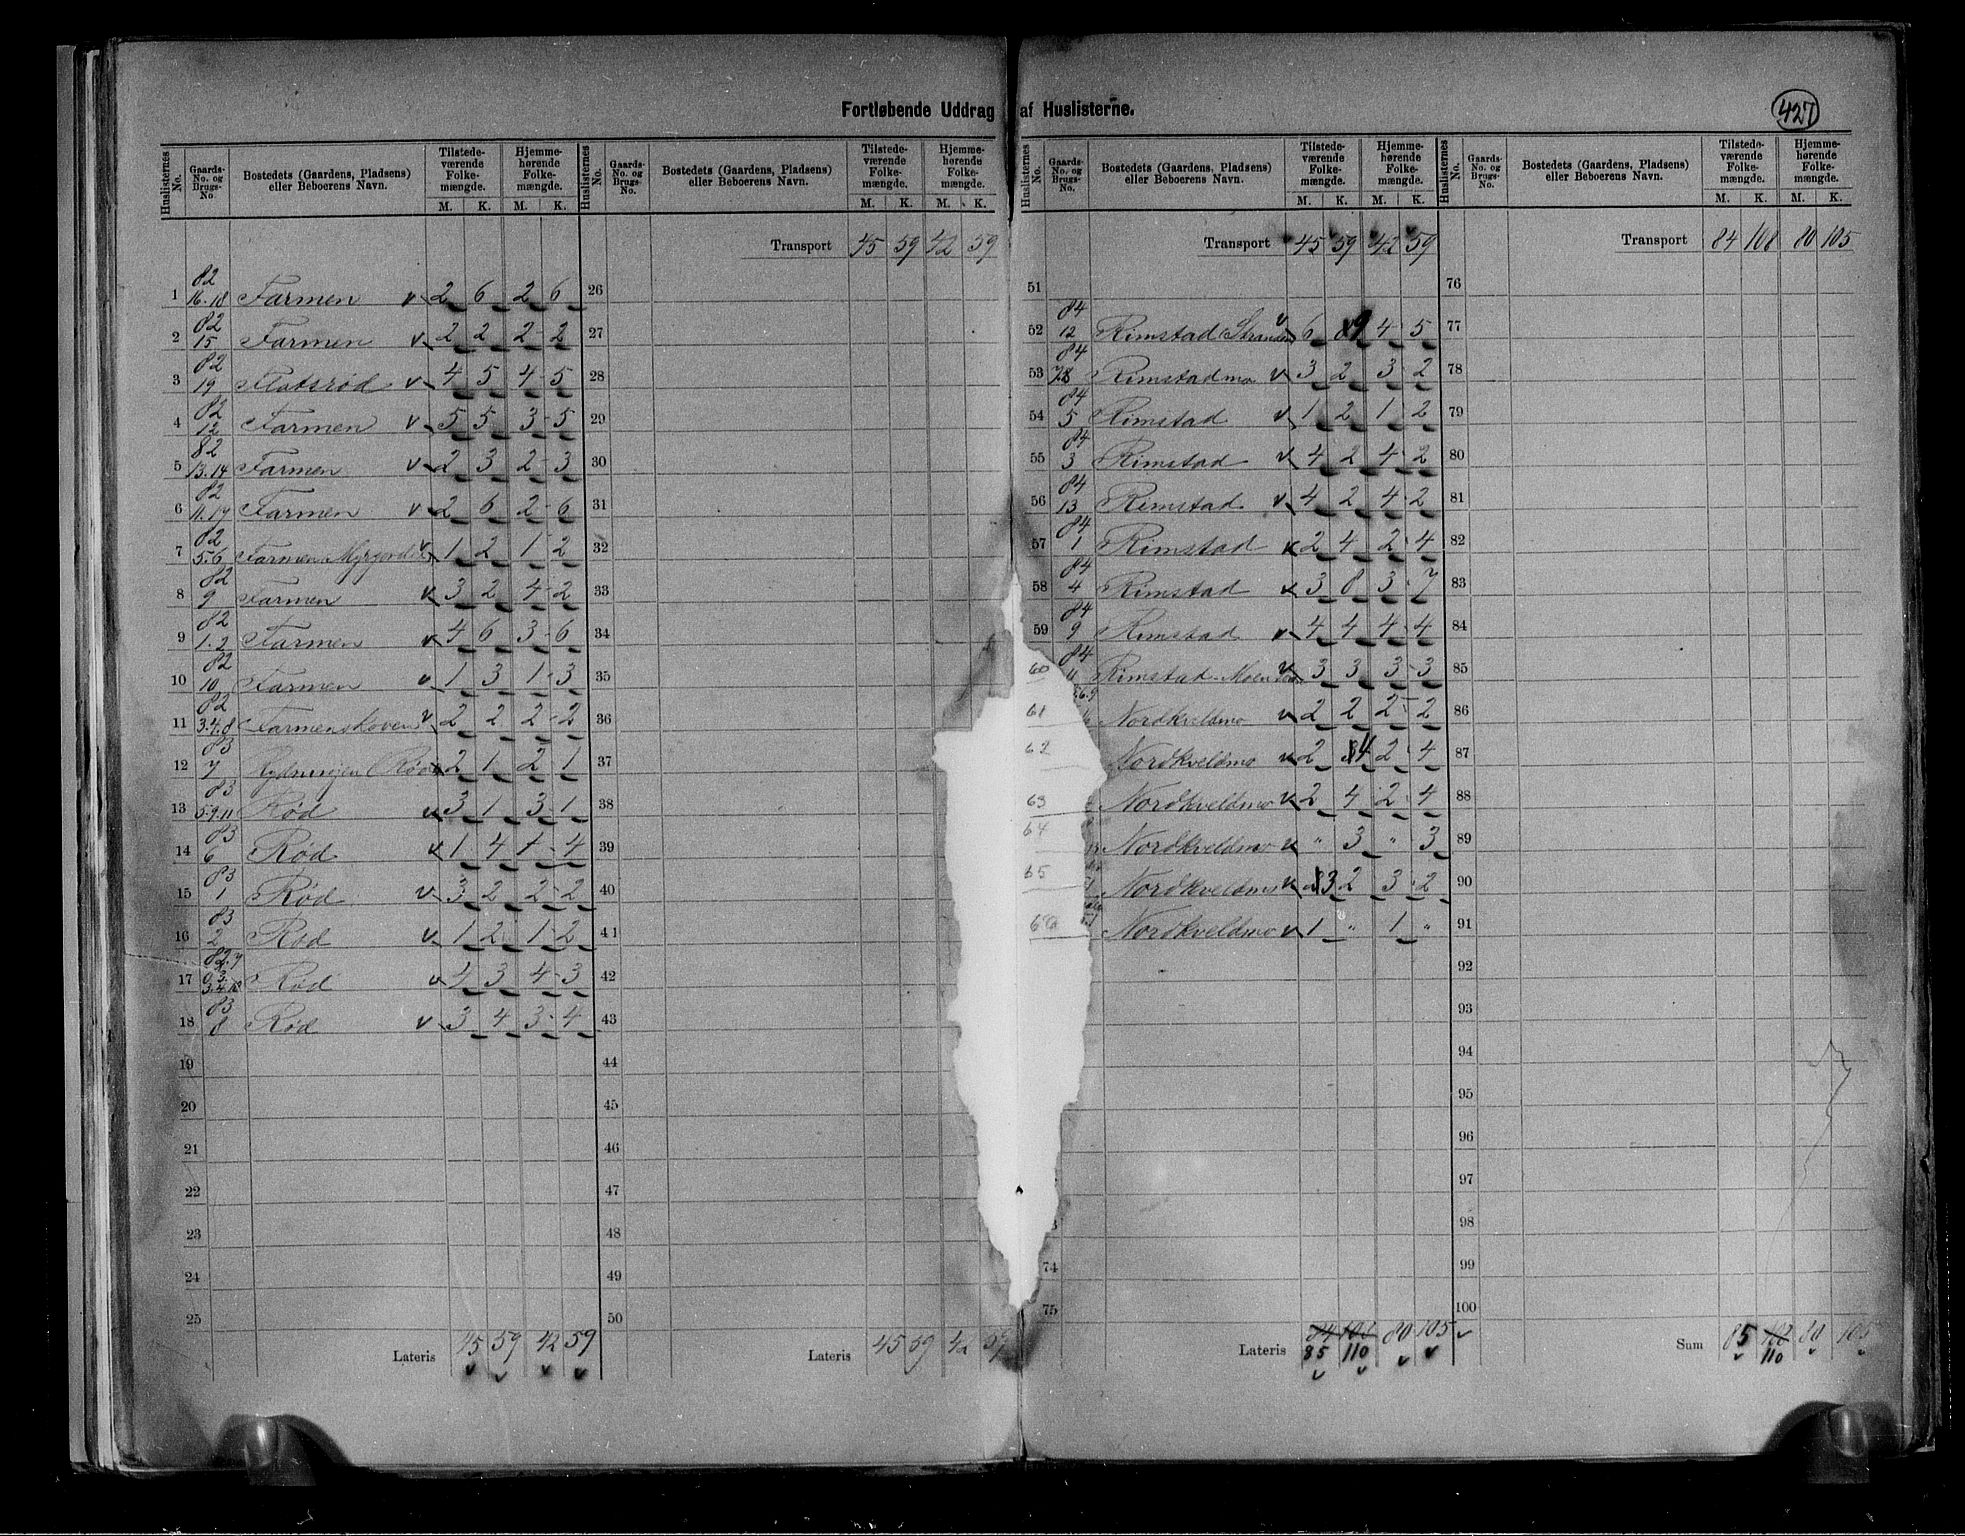 Fortløbende Uddrag af Huslisterne.
427
Huslisternes No. | Gaards-No. og Brugs-No. | Bostedets (Gaardens, Pladsens) eller Beboerens Navn. | Tilstedeværende Folkemængde. M. K. | Hjemmehørende Folkemængde. M. K.
1 | 82 16.18 | Farmen | 2 | 6 | 2 | 6
2 | 82 15 | Farmen | 2 | 2 | 2 | 2
3 | 82 19 | Flatsrød | 4 | 5 | 4 | 5
4 | 82 12 | Farmen | 5 | 5 | 3 | 5
5 | 82 13.14 | Farmen | 2 | 3 | 2 | 3
6 | 82 11.17 | Farmen | 2 | 6 | 2 | 6
7 | 82 5.6 | Farmen | 1 | 2 | 1 | 2
8 | 82 9 | Farmen | 3 | 2 | 4 | 2
9 | 82 1.2 | Farmen | 4 | 6 | 3 | 6
10 | 82 10 | Farmen | 1 | 3 | 1 | 3
11 | 82 3.4.8 | Farmenskoven | 2 | 2 | 2 | 2
12 | 83 7 | 2 | 1 | 2 | 1
13 | 83 5.9.11 | Rød | 3 | 1 | 3 | 1
14 | 83 6 | Rød | 1 | 4 | 1 | 4
15 | 83 1 | Rød | 3 | 2 | 2 | 2
16 | 83 2 | Rød | 1 | 2 | 1 | 2
17 | Rød | 4 | 3 | 4 | 3
18 | 83 8 | Rød | 3 | 4 | 3 | 4
19
20
21
22
23
24
25
Lateris 45 59 42 59
Huslisternes No. | Gaards-No. og Brugs-No. | Bostedets (Gaardens, Pladsens) eller Beboerens Navn. | Tilstedeværende Folkemængde. M. K. | Hjemmehørende Folkemængde. M. K.
Transport 45 59 42 59
26
27
28
29
30
31
32
33
34
35
36
37
38
39
40
41
42
43
44
45
46
47
48
49
50
Lateris 45 59 42 59
Huslisternes No. | Gaards-No. og Brugs-No. | Bostedets (Gaardens, Pladsens) eller Beboerens Navn. | Tilstedeværende Folkemængde. M. K. | Hjemmehørende Folkemængde. M. K.
Transport 45 59 42 59
51
52 | 84 12 | Rimstad Stranden | 6 | 9 | 4 | 5
53 | 84 7.8 | Rimstadmo | 3 | 2 | 3 | 2
54 | 84 5 | Rimstad | 1 | 2 | 1 | 2
55 | 84 3 | Rimstad | 4 | 2 | 4 | 2
56 | 84 13 | Rimstad | 4 | 2 | 4 | 2
57 | 84 1 | Rimstad | 2 | 4 | 2 | 4
58 | 84 4 | Rimstad | 3 | 8 | 3 | 7
59 | 84 9 | Rimstad | 4 | 4 | 4 | 4
60 | 84 | Rimstad | 3 | 3 | 3 | 3
61 | Nordkveldmo | 2 | 2 | 2 | 2
62 | Nordkveldmo | 2 | 4 | 2 | 4
63 | Nordkveldmo | 2 | 4 | 2 | 4
64 | Nordkveldmo | " | 3 | " | 3
65 | Nordkveldmo | 3 | 2 | 3 | 2
66 | Nordkveldmo | 1 | " | 1 | "
74
75
Lateris 84 108 80 105
85 110
Huslisternes No. | Gaards-No. og Brugs-No. | Bostedets (Gaardens, Pladsens) eller Beboerens Navn. | Tilstedeværende Folkemængde. M. K. | Hjemmehørende Folkemængde. M. K.
Transport 84 108 80 105
76
77
78
79
80
81
82
83
84
85
86
87
88
89
90
91
92
93
94
95
96
97
98
99
100
Sum 85 108 80 105
110